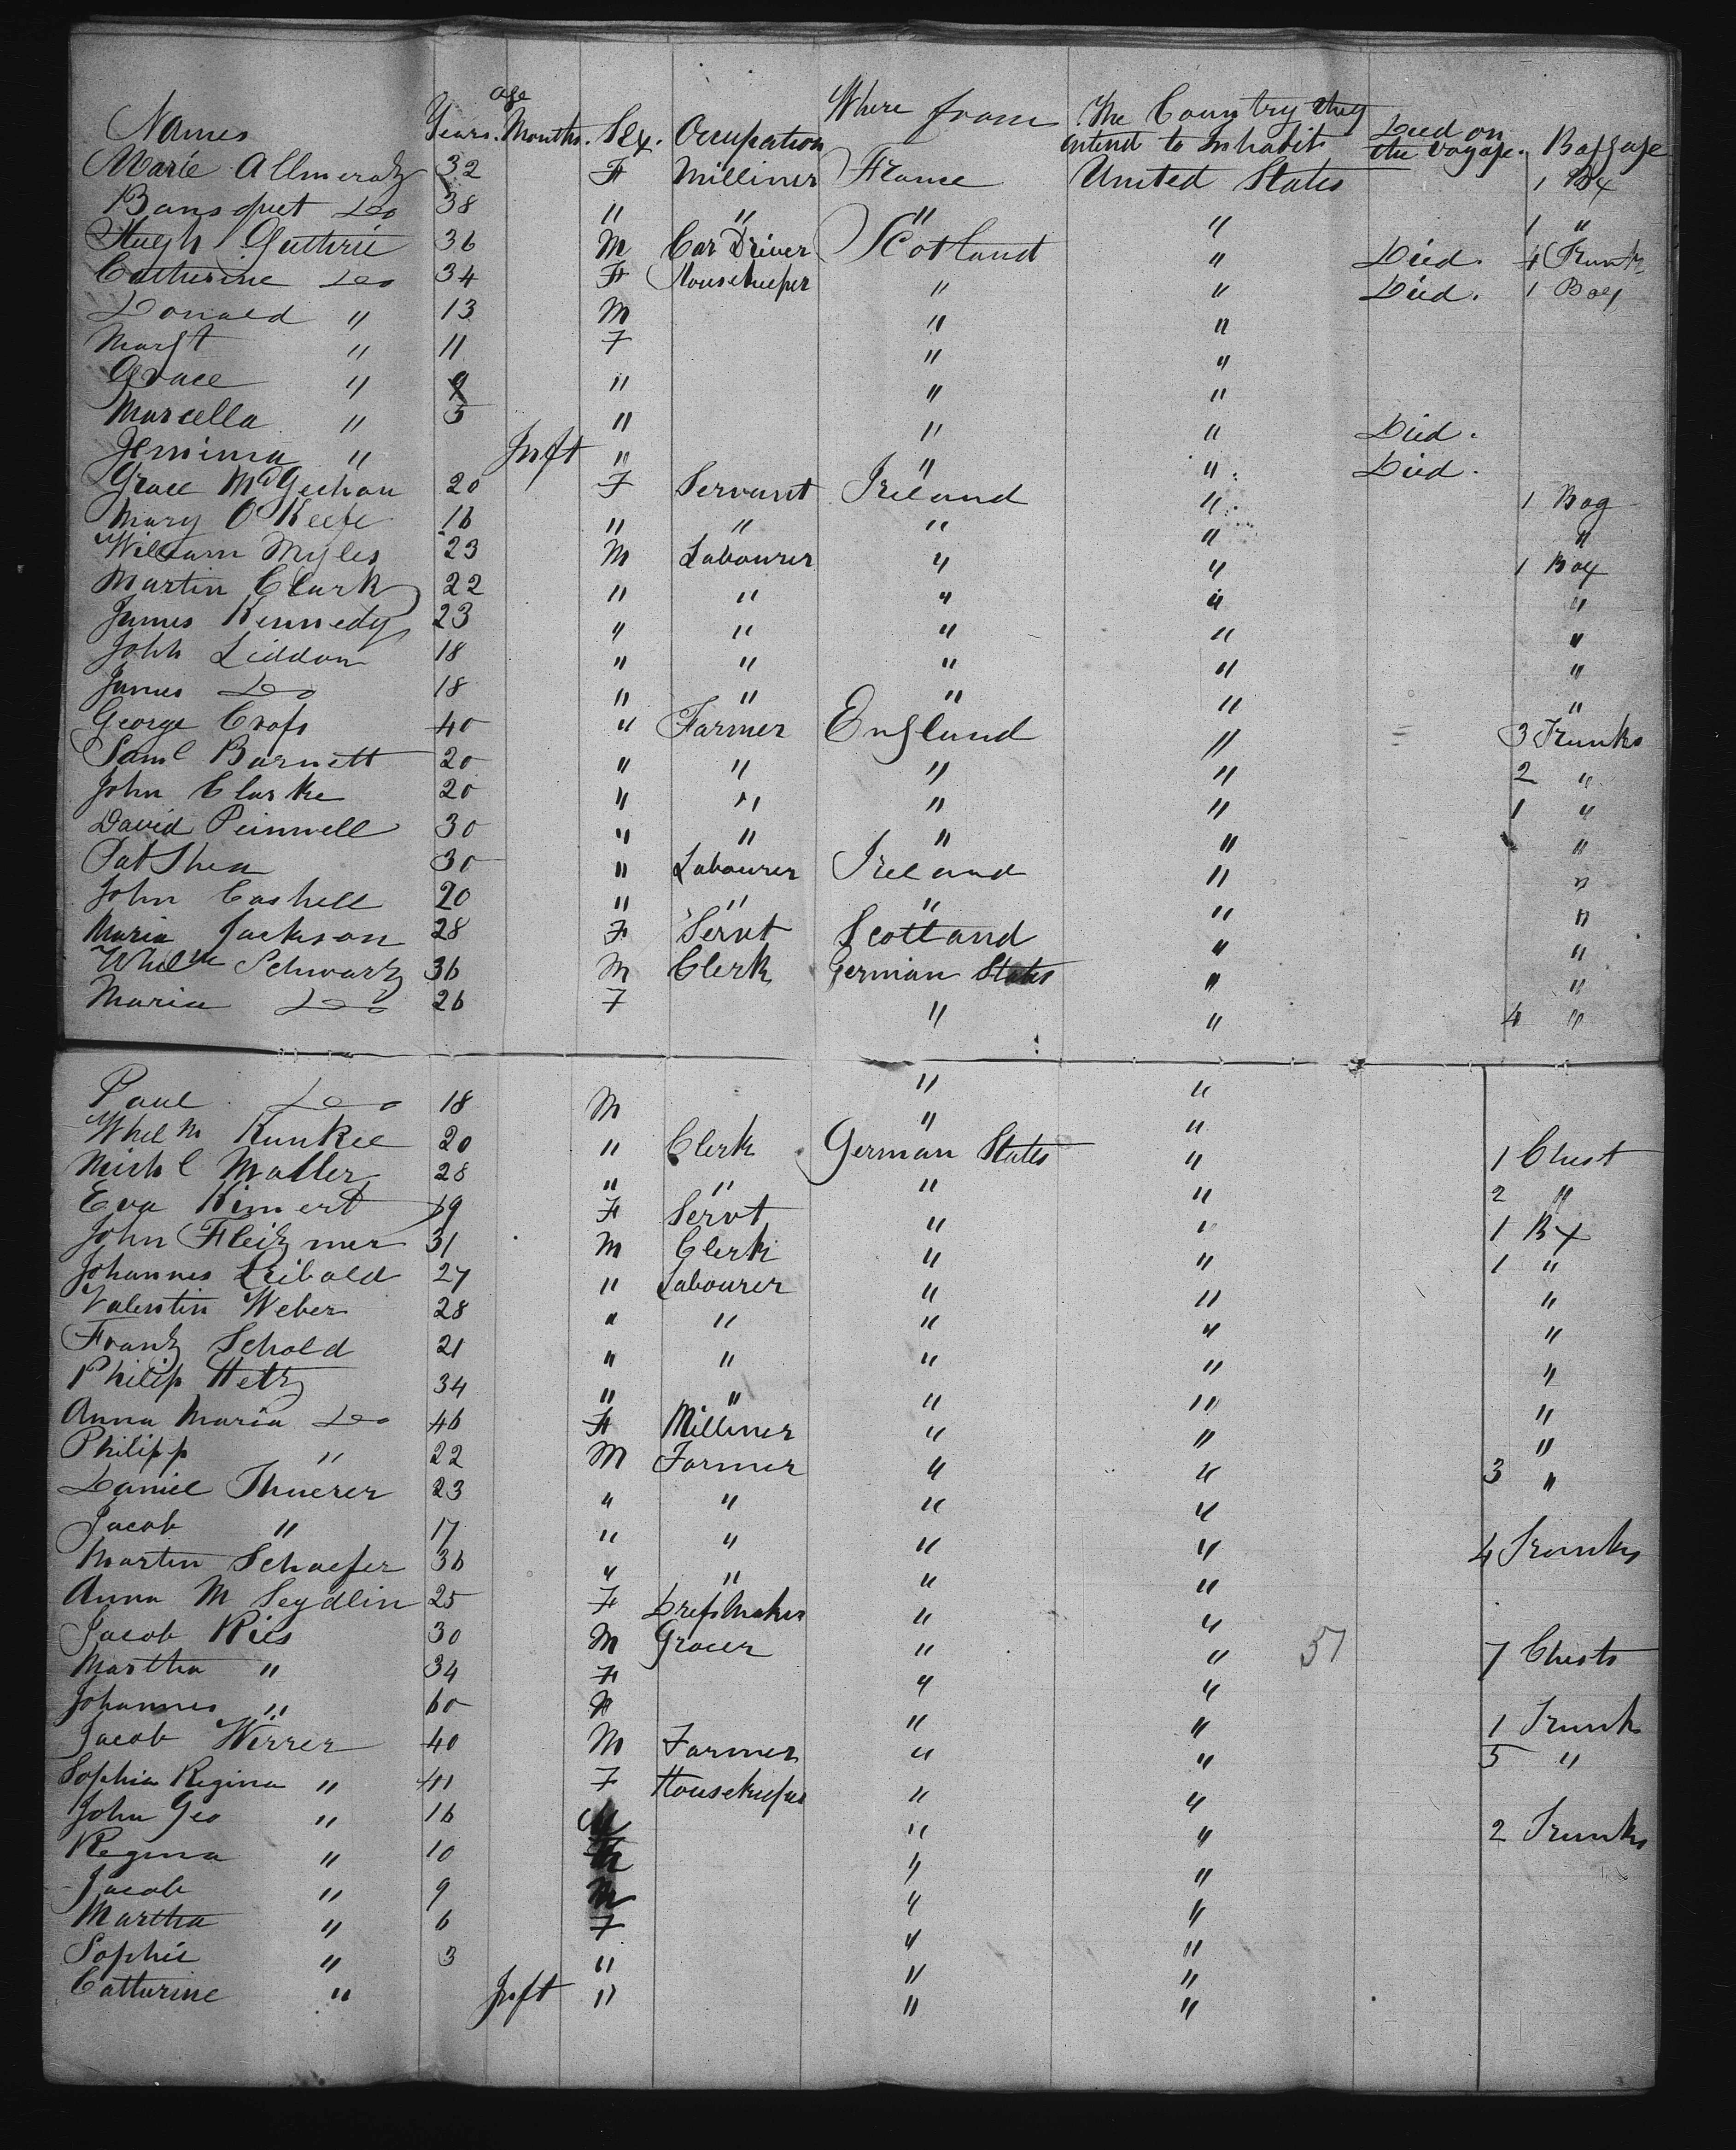 Names Years. age Months. Sex. Occupation Where from The Country they intend to Inhabit Died on the Voyage. Baggage
Marie Allmeratz 32 F Milliner France United States 1 Bx
Bansquet Do 38 " " " " 1 "
Hugh Guthrie 36 M Car Driver Scotland " Died. 4 Trunks
Catherine Do 34 F Housekeeper " " Died. 1 Box
Donald " 13 M " "
Margt " 11 F " "
Grace " 9 " " "
Marcella " 5 " " " Died.
Jemima " Inft " " " Died.
Grace McGechan 20 F Servant Ireland " 1 Bag
Mary O'Keefe 16 " " " " "
William Myles 23 M Labourer " " 1 Box
Martin Clark 22 " " " " "
James Kennedy 23 " " " " "
John Liddon 18 " " " " "
James Do 18 " " " " "
George Crofs 40 " Farmer England " 3 Trunks
Saml Barnett 20 " " " " 2 "
John Clarke 20 " " " " 1 "
David Peinwell 30 " " " " "
Pat Shea 30 " Labourer Ireland " "
John Cashell 20 " " " " "
Maria Jackson 28 F Servt Scotland " "
Whelm Schwartz 36 M Clerk German States " "
Maria Do 26 F " " 4 "
Paul Do 18 M " "
Whelm Kunkel 20 " Clerk German States " 1 Chest
Michl Maller 28 " " " " 2 "
Eva Kimert 19 F Servt " " 1 Bx
John Fleitzmer 31 M Clerk " " 1 "
Johannes Leibold 27 " Labourer " " "
Valentin Weber 28 " " " " "
Frantz Schold 21 " " " " "
Philip Hetz 34 " " " " "
Anna Maria Do 46 F Milliner " " "
Philipp " 22 M Farmer " " 3 "
Daniel Thuerer 23 " " " "
Jacob " 17 " " " " 4 Trunks
Martin Schaefer 36 " " " "
Anna M Seydlin 25 F Drefs Maker " "
Jacob Ries 30 M Grocer " " 51 7 Chests
Martha " 34 F " "
Johannes " 60 M " " 1 Trunk
Jacob Wirrer 40 M Farmer " " 5 "
Sophia Regina " 41 F Housekeeper " "
John Geo " 16 M " " 2 Trunks
Regina " 10 F " "
Jacob " 9 M " "
Martha " 6 F " "
Sophie " 3 " " "
Catturine " Inft " " "